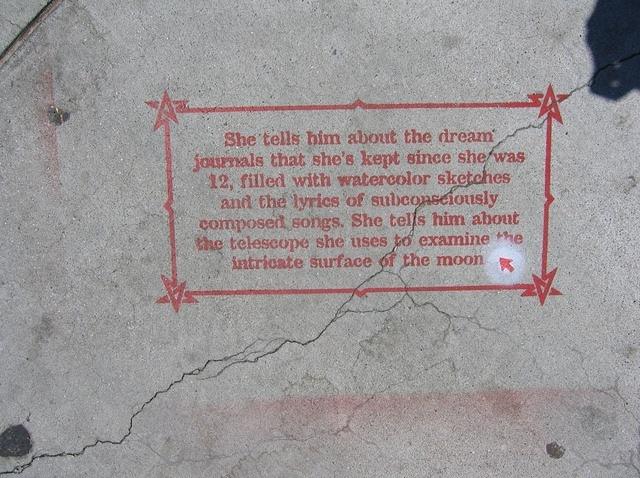 She tells him about the dream
journals that she's kept since she was
12, filled with watercolor sketches
and the lyrics of subconsciously
composed songs. She tells him about
the telescope she uses to examine the
intricate surface of the moon